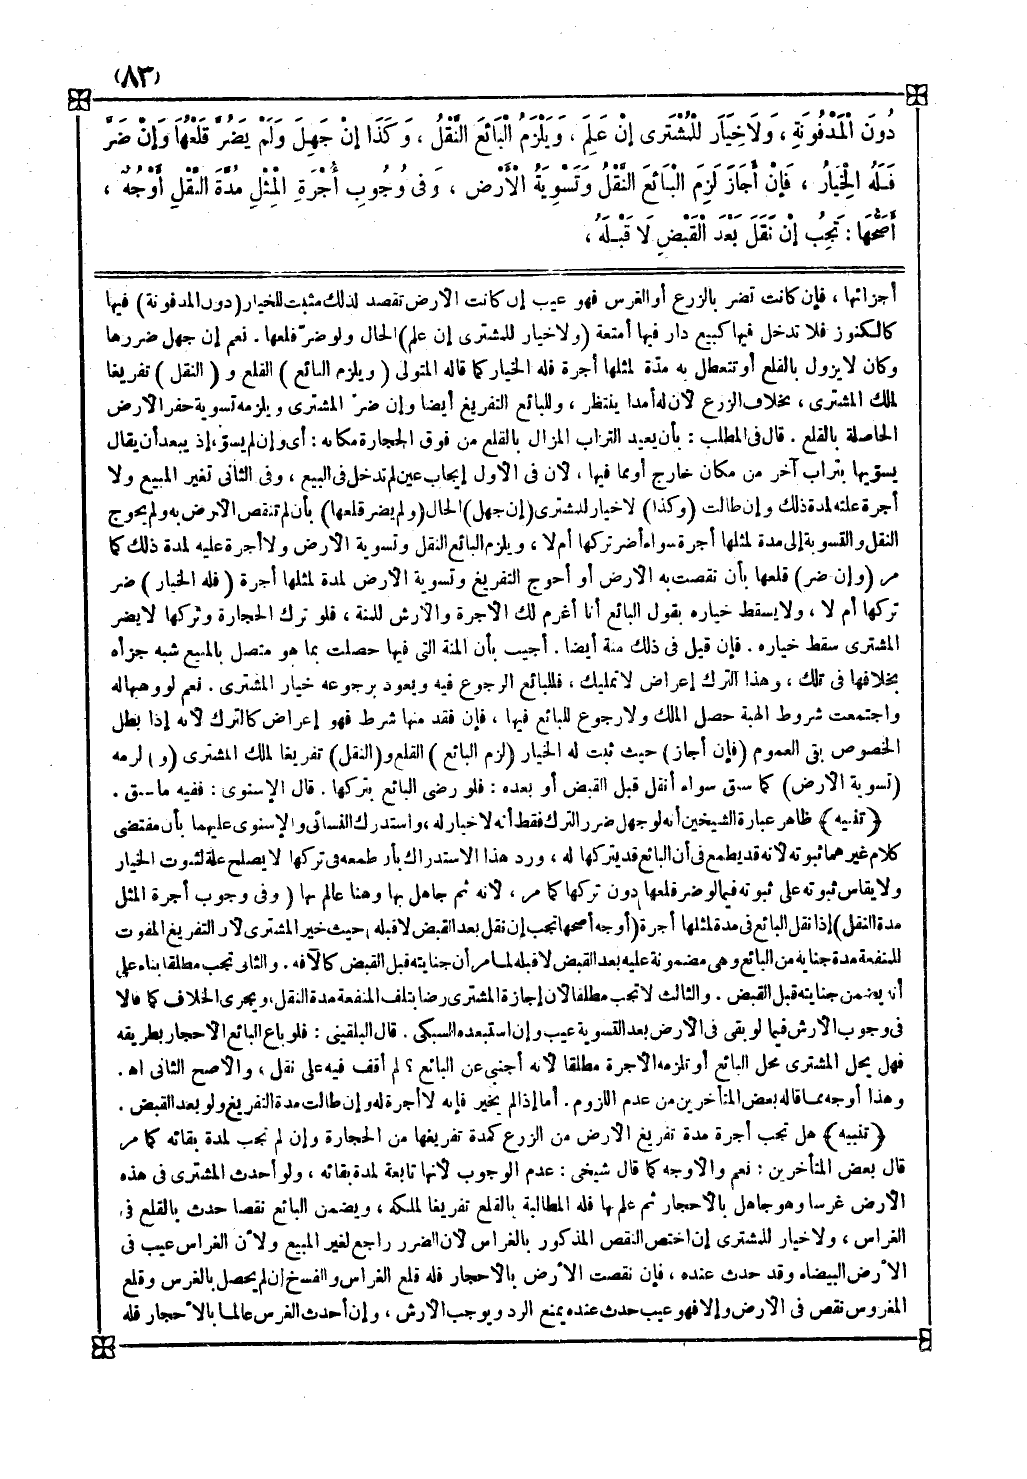 (٨٣)
دُونَ الْمَدْفُونَةِ ، وَلَا خِيَارَ لِلْمُشْتَرِى إِنْ عَلِمَ ، وَيَلْزَمُ الْبَائِعَ النَّقْلُ ، وَكَذَا إِنْ جَهِلَ وَلَمْ يَضُرَّ قَلْعُهَا وَإِنْ ضَرَّ
فَلَهُ الْخِيَارُ ، فَإِنْ أَجَازَ لَزِمَ الْبَائِعَ النَّقْلُ وَتَسْوِيَةُ الْأَرْضِ ، وَفِى وُجُوبِ أُجْرَةِ الْمِثْلِ مُدَّةَ النَّقْلِ أَوْجُهٌ ،
أَصَحُّهَا : تَجِبُ إِنْ نَقَلَ بَعْدَ الْقَبْضِ لَا قَبْلَهُ ،
أجزائها ، فإن كانت تضر بالزرع أو الغرس فهو عيب إن كانت الارض تقصد لذلك مثبت للخيار (دون المدفونة) فيها
كالكنوز فلا تدخل فيها كبيع دار فيها أمتعة (ولا خيار للمشترى إن علم) الحال ولو ضرّ قلعها . نعم إن جهل ضررها
وكان لا يزول بالقلع أو تتعطل به مدّة لمثلها أجرة فله الخيار كما قاله المتولى (ويلزم البائع) القلع و (النقل) تفريغا
لملك المشترى ، بخلاف الزرع لأن له أمدا ينتظر ، وللبائع التفريغ أيضا وإن ضرّ المشترى ويلزمه تسوية حفر الارض
الحاصلة بالقلع . قال فى المطلب : بأن يعيد التراب المزال بالقلع من فوق الحجارة مكانه : أى وإن لم يسوّ ، إذ يبعد أن يقال
يسوّيها بتراب آخر من مكان خارج أو مما فيها ، لان فى الاول إيجاب عين لم تدخل فى البيع ، وفى الثانى تغير المبيع ولا
أجرة عليه لمدة ذلك وإن طالت (وكذا) لا خيار للمشترى (إن جهل) الحال (ولم يضر قلعها) بأن لم تنقص الارض به ولم يحوج
النقل والتسوية إلى مدة لمثلها أجرة سواء أضر تركها أم لا ، ويلزم البائع النقل وتسوية الارض ولا أجرة عليه لمدة ذلك كما
مر (وإن ضر) قلعها بأن نقصت به الارض أو أحوج التفريغ وتسوية الارض لمدة لمثلها أجرة (فله الخيار) ضر
تركها أم لا ، ولا يسقط خياره بقول البائع أنا أغرم لك الاجرة والارش للمنة ، فلو ترك الحجارة وتركها لا يضر
المشترى سقط خياره . فإن قيل فى ذلك منة أيضا . أجيب بأن المنة التى فيها حصلت بما هو متصل بالمبيع شبه جزأه
بخلافها فى تلك ، وهذا الترك إعراض لا تمليك ، فللبائع الرجوع فيه ويعود برجوعه خيار المشترى . نعم لو وهبها له
واجتمعت شروط الهبة حصل الملك ولا رجوع للبائع فيها ، فإن فقد منها شرط فهو إعراض كالترك لانه إذا بطل
الخصوص بقى العموم (فإن أجاز) حيث ثبت له الخيار (لزم البائع) القلع و (النقل) تفريغا لملك المشترى (و) لزمه
(تسوية الارض) كما سبق سواء أنقل قبل القبض أو بعده : فلو رضى البائع بتركها . قال الإسنوى : ففيه ما سبق .
(تنبيه) ظاهر عبارة الشيخين أنه لو جهل ضرر الترك فقط أنه لا خيار له ، واستدرك النسائى والإسنوى عليهما بأن مقتضى
كلام غيرهما ثبوته لأنه قد يطمع فى أن البائع قد يتركها له ، ورد هذا الاستدراك بأن طمعه فى تركها لا يصلح علة لثبوت الخيار
ولا يقاس ثبوته على ثبوته فيما لو ضر قلعها دون تركها كما مر ، لانه ثم جاهل بها وهنا عالم بها (وفى وجوب أجرة المثل
مدة النقل) إذا نقل البائع فى مدة لمثلها أجرة (أوجه أصحها تجب إن نقل بعد القبض لا قبله) حيث خير المشترى لان التفريغ المفوت
للمنفعة مدة جناية من البائع وهى مضمونة عليه بعد القبض لا قبله لما مر أن جنايته قبل القبض كالآفه . والثانى تجب مطلقا بناء على
أنه يضمن جنايته قبل القبض . والثالث لا تجب مطلقا لان إجازة المشترى رضا بتلف المنفعة مدة النقل ، ويجرى الخلاف كما قالا
فى وجوب الارش فيما لو بقى فى الارض بعد التسوية عيب وإن استبعده السبكى . قال البلقينى : فلو باع البائع الاحجار بطريقه
فهل يحل المشترى محل البائع أو تلزمه الاجرة مطلقا لانه أجنبى عن البائع ؟ لم أقف فيه على نقل ، والاصح الثانى اه .
وهذا أوجه مما قاله بعض المتأخرين من عدم اللزوم . أما إذا لم يخير فإنه لا أجرة له وإن طالت مدة التفريغ ولو بعد القبض .
(تنبيه) هل تجب أجرة مدة تفريغ الارض من الزرع كمدة تفريغها من الحجارة وإن لم تجب لمدة بقائه كما مر
قال بعض المتأخرين : نعم والاوجه كما قال شيخى : عدم الوجوب لانها تابعة لمدة بقائه ، ولو أحدث المشترى فى هذه
الارض غرسا وهو جاهل بالاحجار ثم علم بها فله المطالبة بالقلع تفريغا لملكه ، ويضمن البائع نقصا حدث بالقلع فى
الغراس ، ولا خيار للمشترى إن اختص النقص المذكور بالغراس لان الضرر راجع لغير المبيع ولأن الغراس عيب فى
الأرض البيضاء وقد حدث عنده ، فإن نقصت الأرض بالاحجار فله قلع الغراس والفسخ إن لم يحصل بالغرس وقلع
المغروس نقص فى الارض وإلا فهو عيب حدث عنده يمنع الرد ويوجب الارش ، وإن أحدث الغرس عالما بالأحجار فله